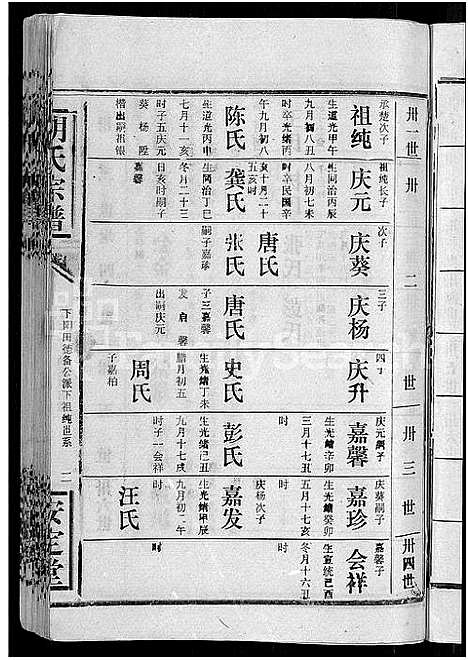 卅一世
承楚次子
祖纯
生道光甲午
九月初八丑
时卒光緒丙
午九月初八
陈氏
生道光丙申
七月十一亥
时子五庆元
葵杨陞
楷出嗣祖银
卅二世
祖纯长子
庆元
生同治丙辰
八月初七未
时卒民国辛
亥十月二十
五亥时
龚氏
生同治丁巳
冬月二十三
日亥时嗣子
嘉馨
次子
庆葵
唐氏
张氏
嗣子嘉珍
三子
庆杨
唐氏
子三嘉馨
发启馨
出嗣庆元
四子
庆升
史氏
生光緒丁未
腊月初五
周氏
子嘉柏
卅三世
庆元嗣子
嘉馨
生光緒辛卯
三月十七戌
时
彭氏
生光緒己丑
九月十七戌
时子一会祥
庆葵嗣子
嘉珍
生光緒癸卯
五月十七亥
时
庆杨次子
嘉发
生光緒甲辰
九月初二午
时
汪氏
卅四世
嘉馨子
会祥
生宣统己酉
冬月十六丑
时
胡氏宗譜
下田田德备公派下祖纯世系
二
安定堂